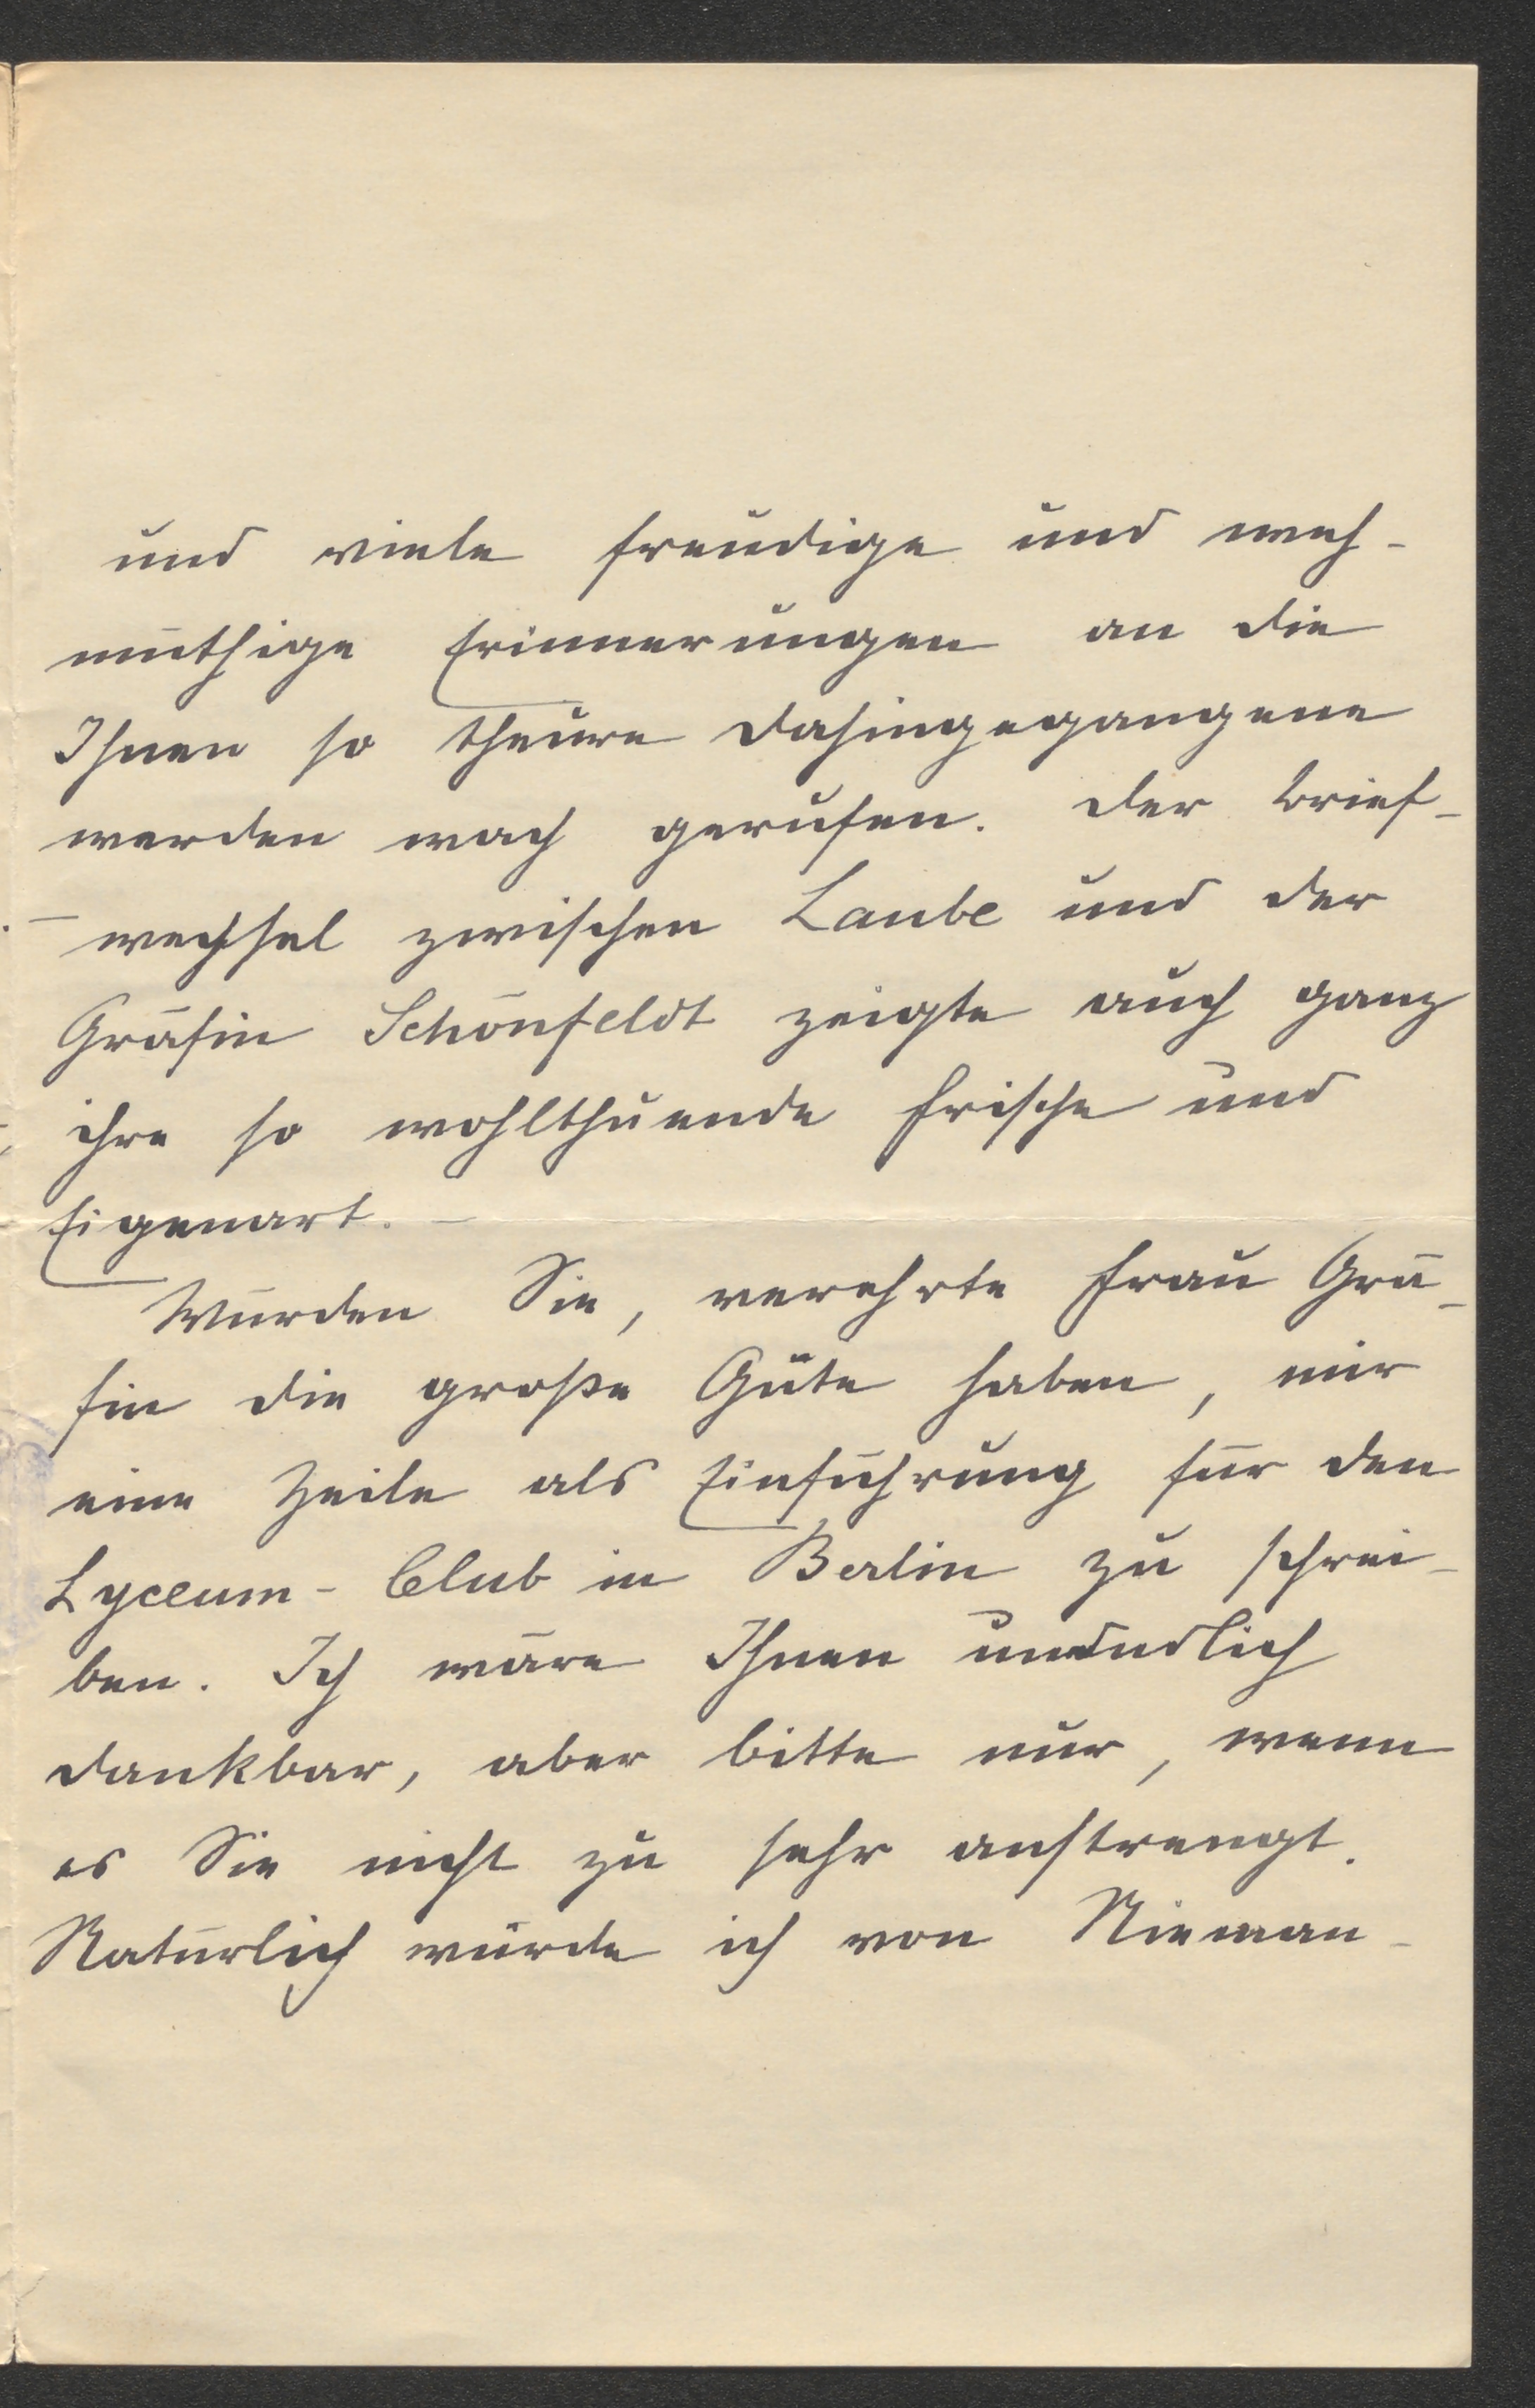 und viele freudige und weh-
müthige Erinnerungen an die
Ihnen so theure Dahingegangene
werden wach gerufen. Der Brief-
-wechsel zwischen Laube und der
Gräfin Schönfeldt zeigte auch ganz
ihre so wohlthuende Frische und
Eigenart. –
Würden Sie, verehrte Frau Grä-
fin die große Güte haben, mir
eine Zeile als Einführung für den
Lyceum-Club in Berlin zu schrei-
ben. Ich wäre Ihnen unendlich
dankbar, aber bitte nur, wenn
es Sie nicht zu sehr anstrengt.
Natürlich würde ich von Nieman-